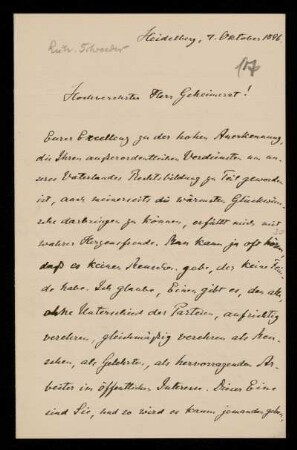 Heidelberg, 7. Oktober 1896
157
Hochverehrter Herr Geheimerat!
Eurer Excellenz zu der hohen Anerkennung,
die Ihren außerordentlichen Verdiensten um un-
seres Vaterlandes Rechtsbildung zu Teil geworden
ist, auch meinerseits die wärmsten Glückwün-
sche darbringen zu können, erfüllt mich mit
wahrer Herzensfreude. Man kann ja oft hören,
daß es keinen Menschen gebe, der keine Fein-
de habe. Ich glaube, Einen gibt es, den alle,
ohne Unterschied der Parteien, aufrichtig
verehren, gleichmäßig verehren als Men-
schen, als Gelehrten, als hervorragenden Ar-
beiter im öffentlichen Interesse. Dieser Eine
sind Sie, und so wird es kaum jemanden geben,